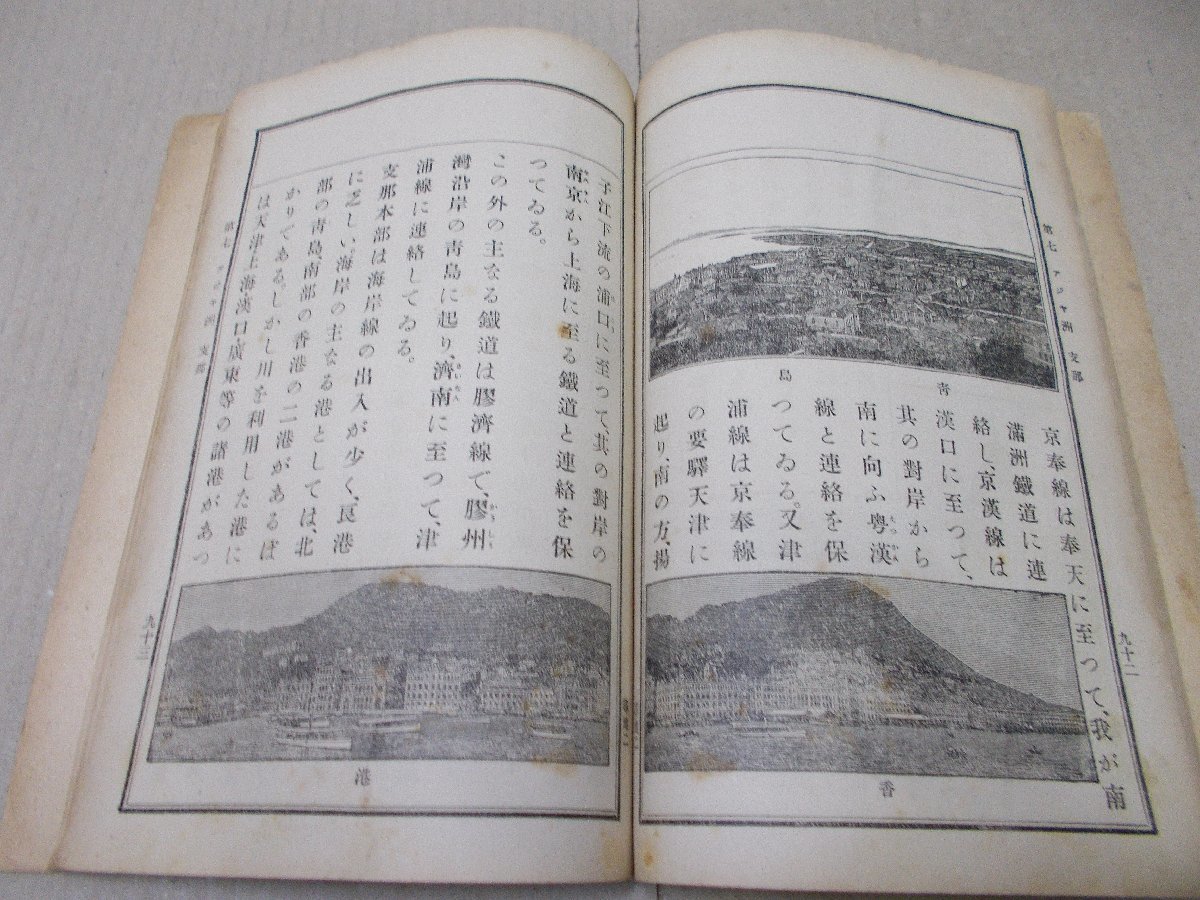 第七 アジヤ洲 支那
九十二
京奉線は奉天に至つて、我が南
滿洲鐵道に連
絡し、京漢線は
漢口に至つて、
其の對岸から
南に向ふ粤漢
線と連絡を保
つてゐる。又津
浦線は京奉線
の要驛天津に
起り、南の方、揚
靑
島
香
子江下流の浦口に至つて、其の對岸の
南京から上海に至る鐵道と連絡を保
つてゐる。
この外の主なる鐵道は膠濟線で、膠州
灣沿岸の靑島に起り、濟南に至つて、津
浦線に連絡してゐる。
支那本部は海岸線の出入が少く、良港
に乏しい。海岸の主なる港としては、北
部の靑島、南部の香港の二港があるば
かりである。しかし川を利用した港に
は天津上海漢口廣東等の諸港があつ
港
第七 アジヤ洲 支那
九十三